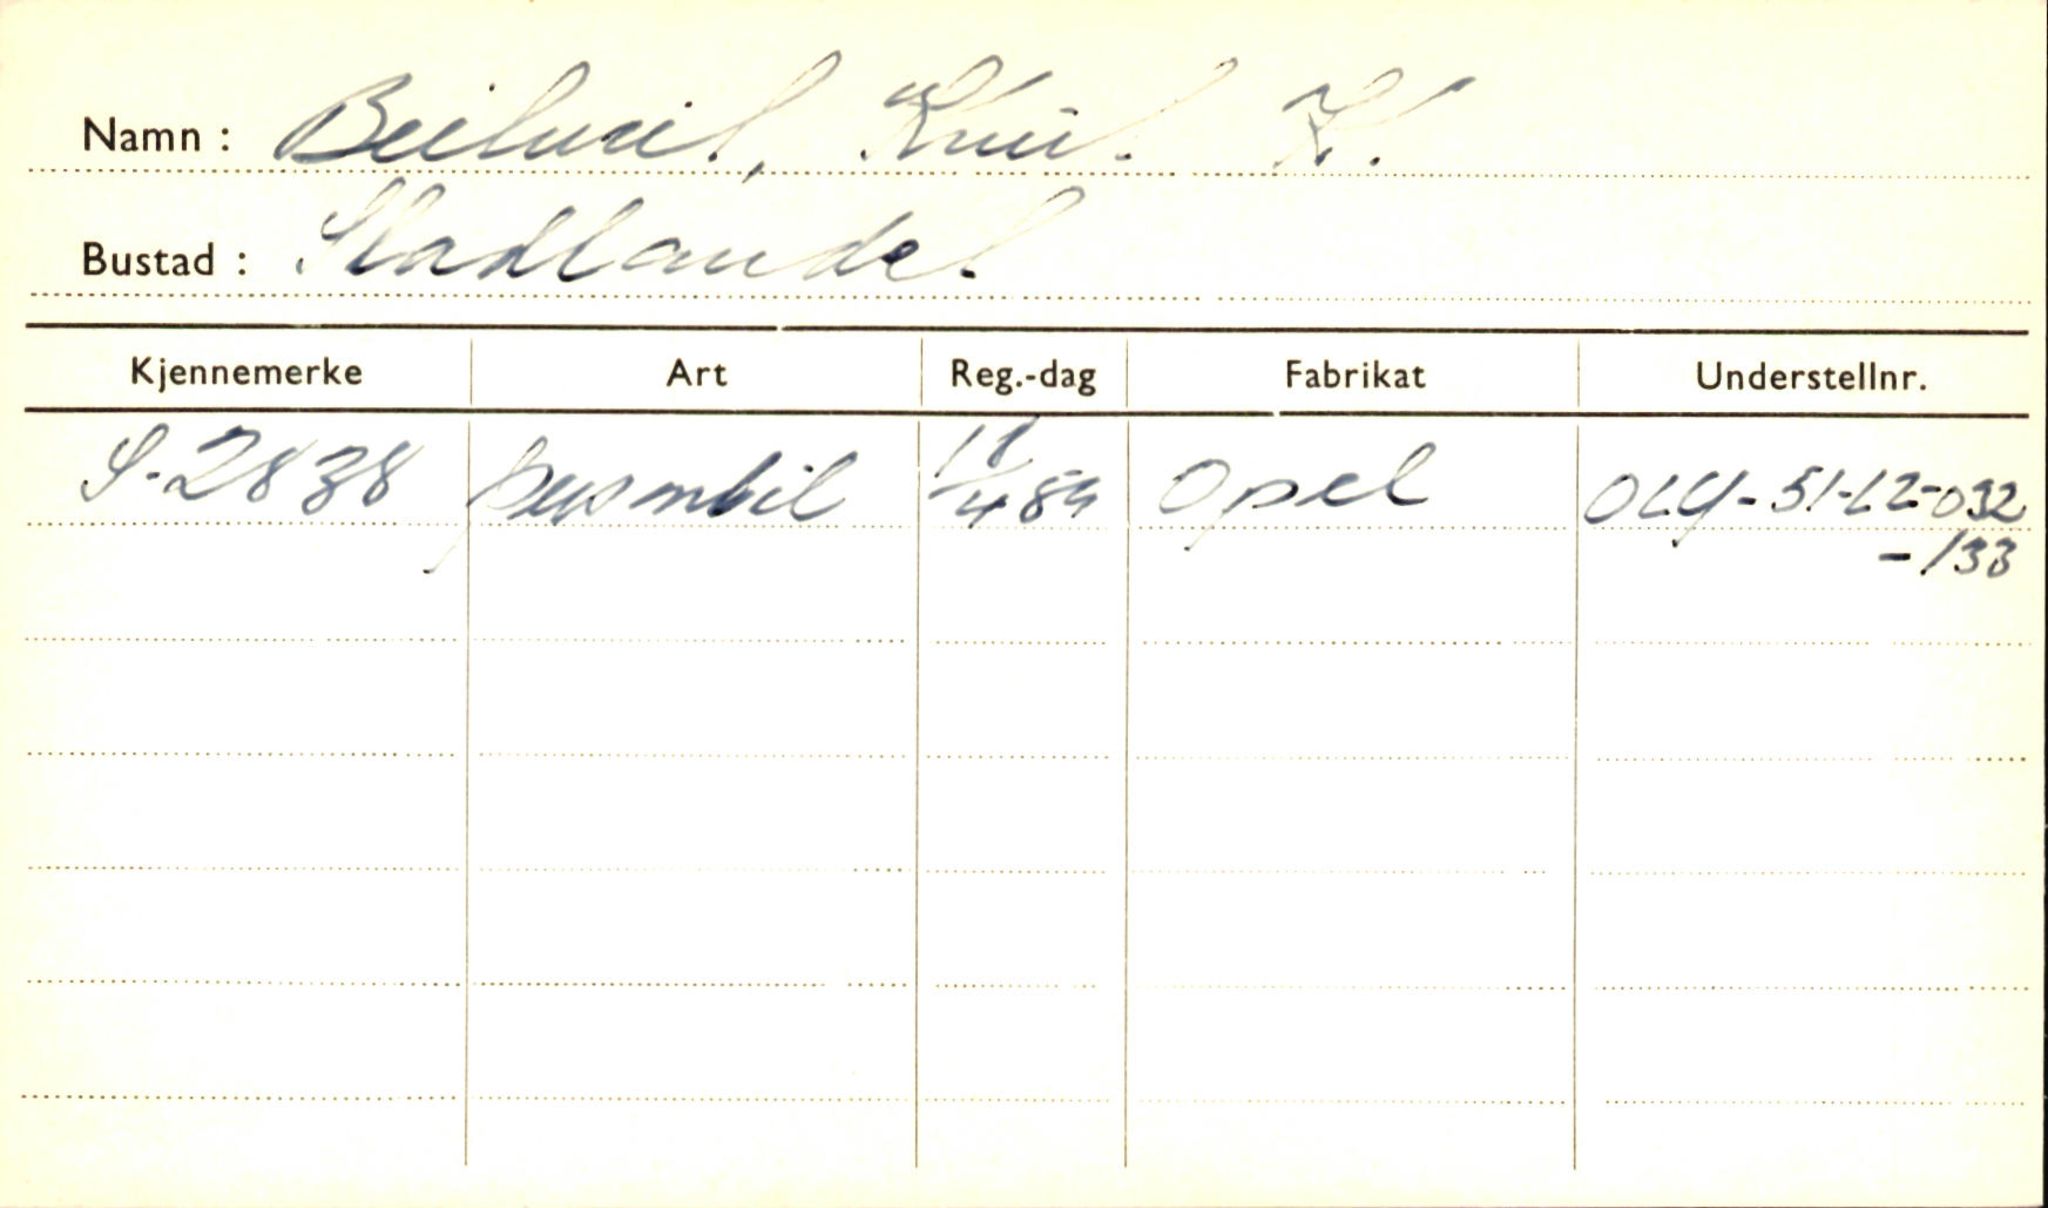 Namn : Beitveit, Knut K.
Bustad : Stadlandet
Kjennemerke Art Reg.-dag Fabrikat Understellnr.
S-2838 personbil 18/4 59 Opel OLY-51-L2-032
-133